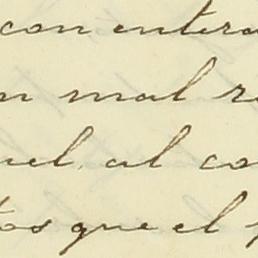 con entera
n mal r
el al co
tos que el